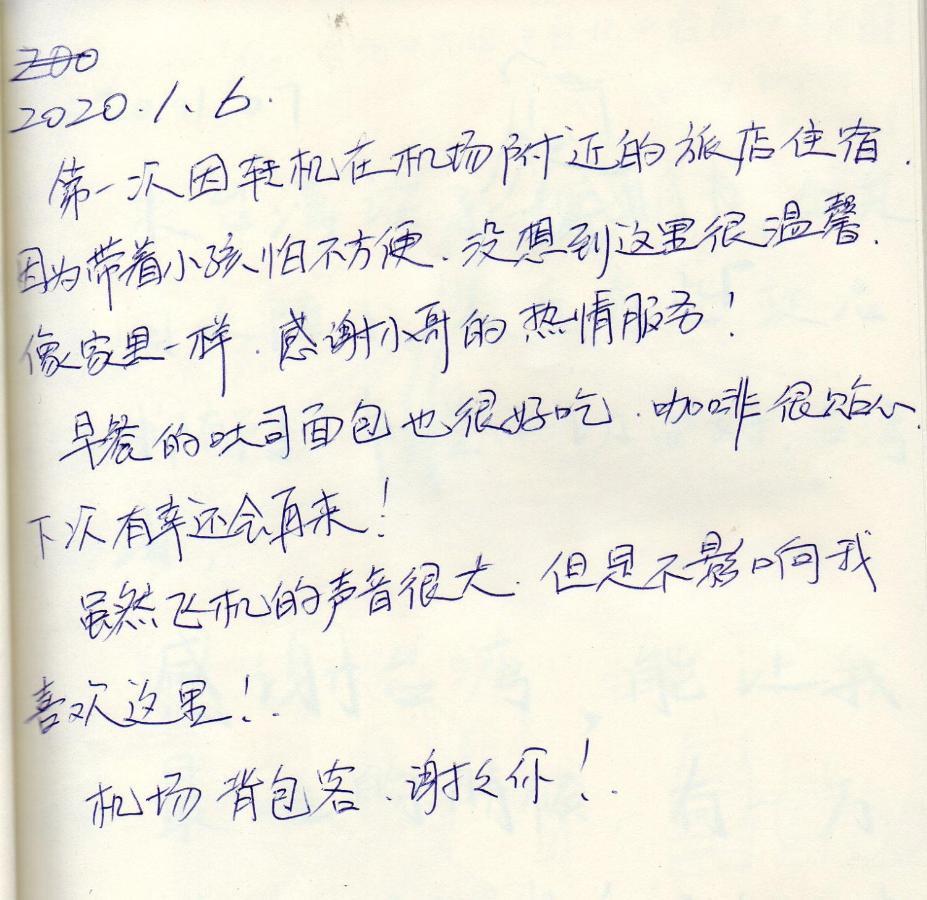 2020.1.6.
第一次因转机在机场附近的旅店住宿.
因为带着小孩怕不方便.没想到这里很温馨.
像家里一样.感谢小哥的热情服务!
早餐的吐司面包也很好吃.咖啡很贴心.
下次有幸还会再来!
虽然飞机的声音很大.但是不影响我
喜欢这里!
机场背包客.谢谢你!